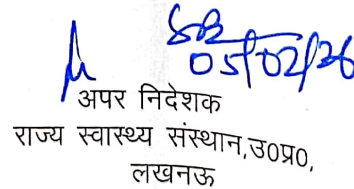 05/02/26
अपर निदेशक
राज्य स्वास्थ्य संस्थान,उ0प्र0,
लखनऊ